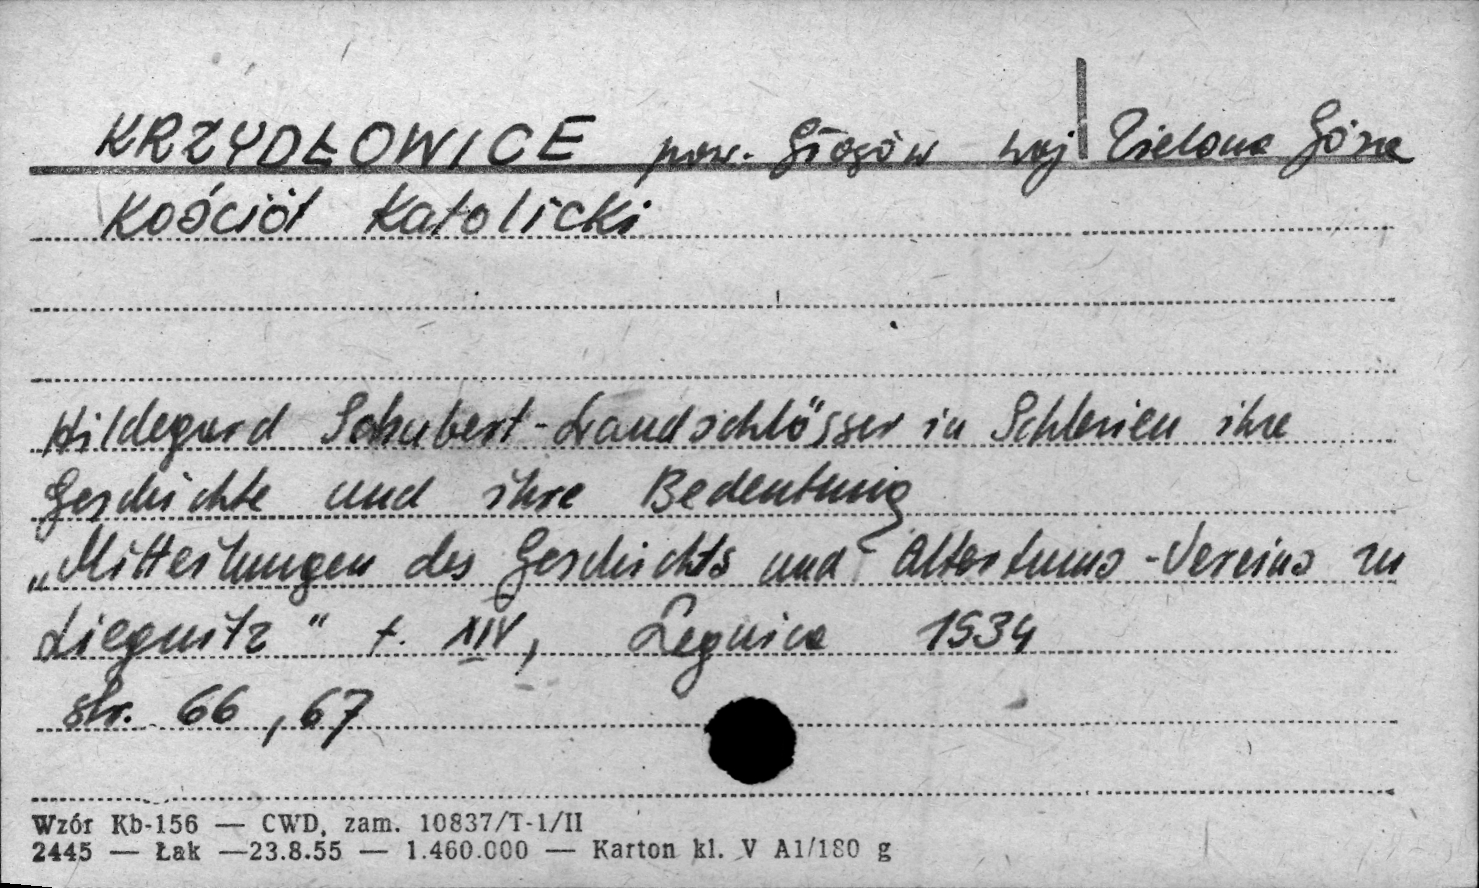 KRZYDŁOWICE pow. Głogów woj Zielona Góra
Kościół Katolicki
Hildegard Schubert - Landschlösser in Schlesien ihre
Geschichte und ihre Bedeutung
„Mitteilungen des Geschichts und Altertums - Vereins zu
Liegnitz" t. XIV, Legnica 1934
str. 66, 67
Wzór Kb-156 — CWD, zam. 10837/T-1/II
2445 — Łak —23.8.55 — 1.460.000 — Karton kl. V A1/180 g